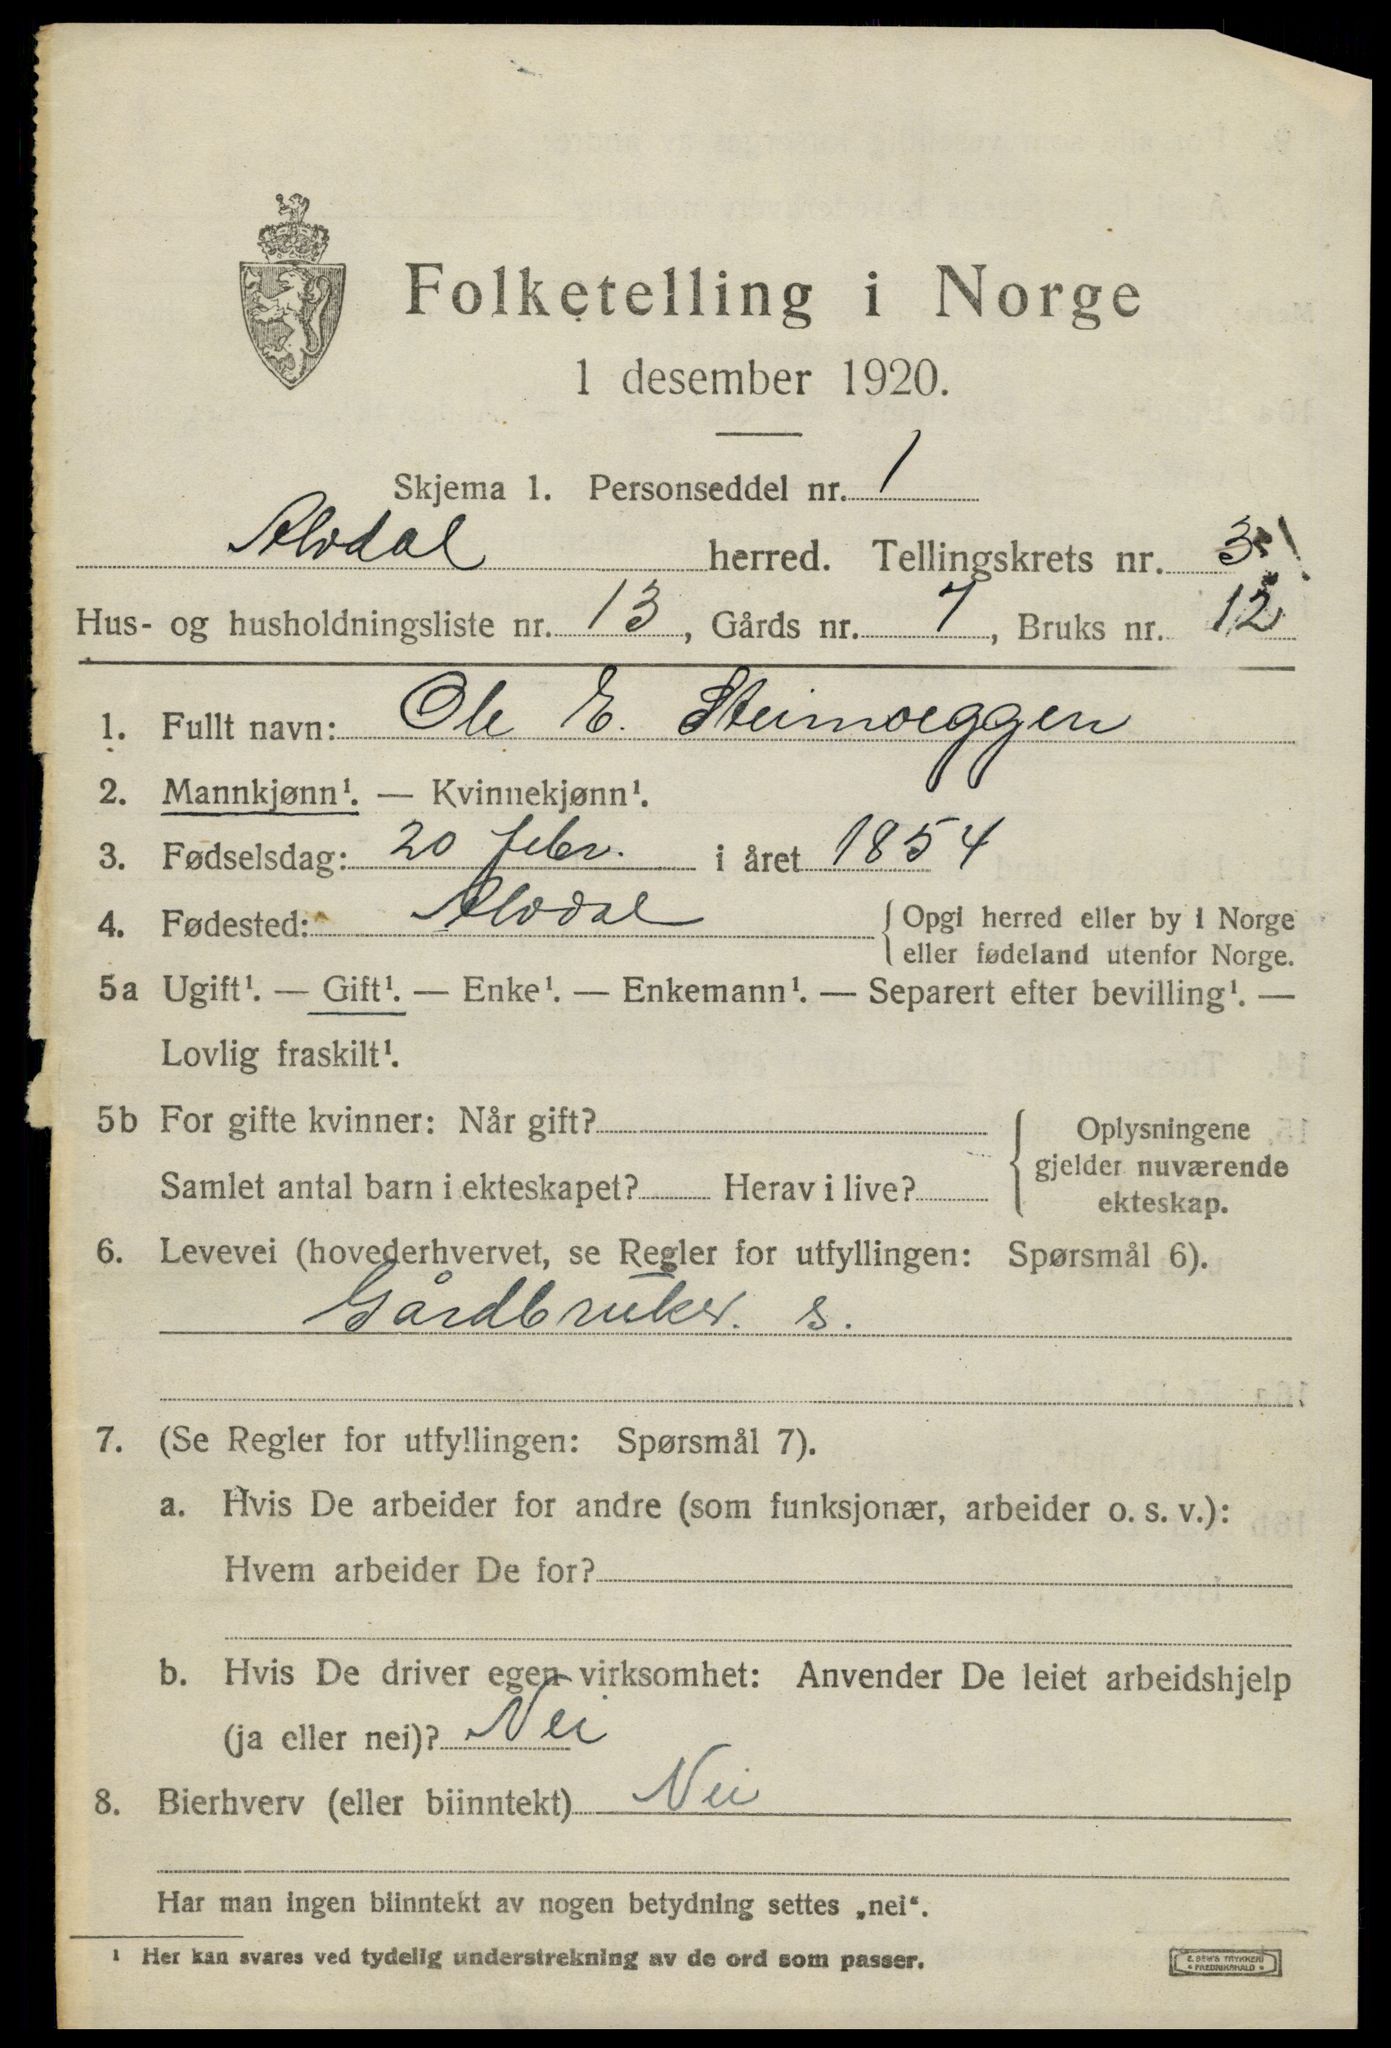 Folketelling i Norge
1 desember 1920.
Skjema 1. Personseddel nr. 1
Alvdal herred. Tellingskrets nr. 3
Hus- og husholdningsliste nr. 13, Gårds nr. 7, Bruks nr. 12
1. Fullt navn: Ole E. Steimoeggen
2. Mannkjønn¹. — Kvinnekjønn¹.
3. Fødselsdag: 20 febr. i året 1854
4. Fødested: Alvdal
Opgi herred eller by i Norge
eller fødeland utenfor Norge.
5a Ugift¹. — Gift¹. — Enke¹. — Enkemann¹. — Separert efter bevilling¹. —
Lovlig fraskilt¹.
5b For gifte kvinner: Når gift?
Samlet antal barn i ekteskapet? Herav i live?
Oplysningene
gjelder nuværende
ekteskap.
6. Levevei (hovederhvervet, se Regler for utfyllingen: Spørsmål 6).
Gårdbruker. s.
7. (Se Regler for utfyllingen: Spørsmål 7).
a. Hvis De arbeider for andre (som funksjonær, arbeider o. s. v.):
Hvem arbeider De for?
b. Hvis De driver egen virksomhet: Anvender De leiet arbeidshjelp
(ja eller nei)? Nei
8. Bierhverv (eller biinntekt) Nei
Har man ingen biinntekt av nogen betydning settes „nei“.
¹ Her kan svares ved tydelig understrekning av de ord som passer.
E. SEM'S TRYKKERI
FREDRIKSHALD